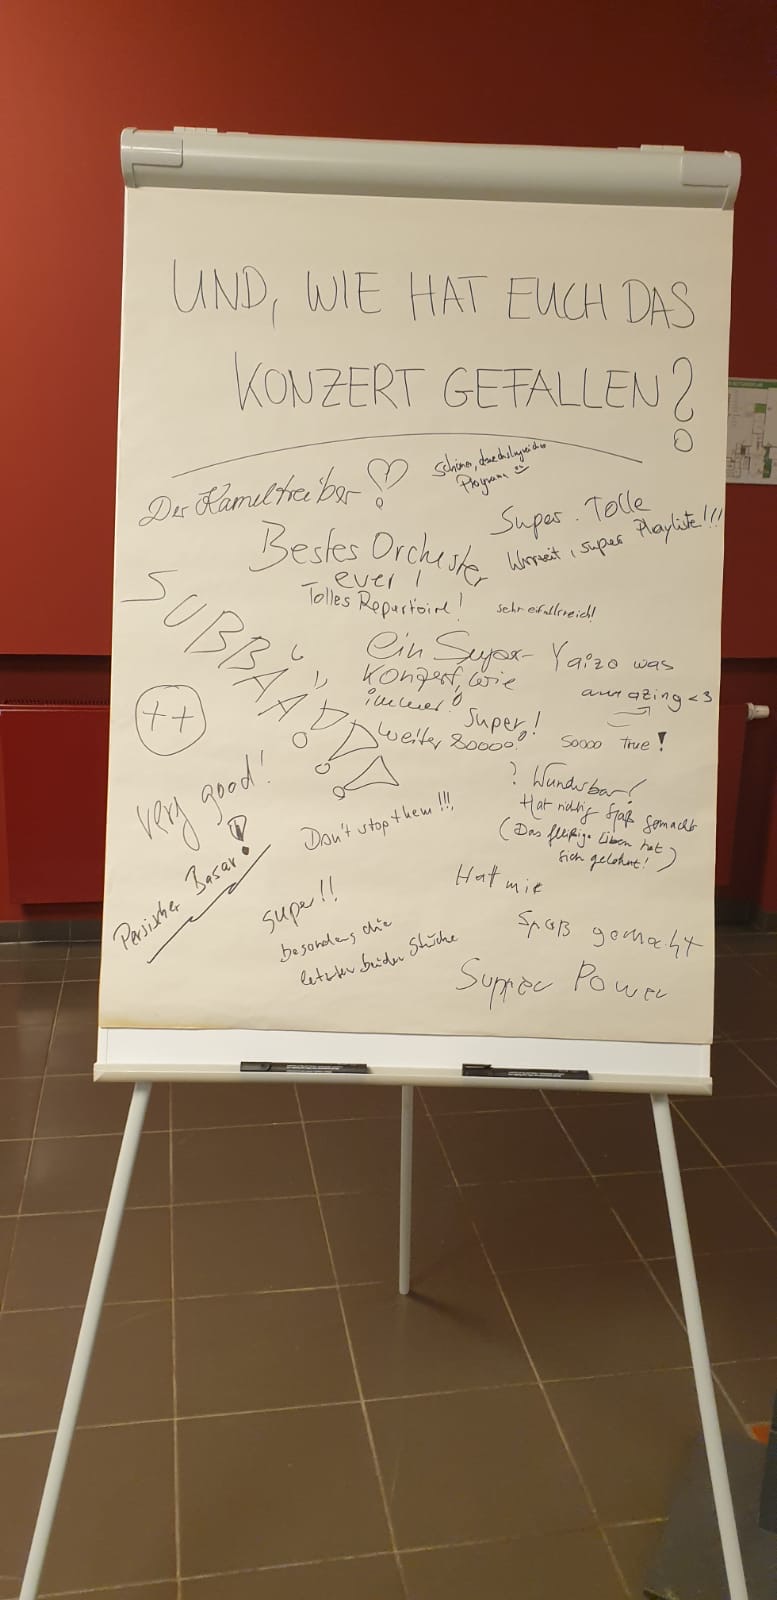 UND, WIE HAT EUCH DAS
KONZERT GEFALLEN?
Der Kameltreiber!
Schönes,
Programm
Super. Tolle
super Playliste!!!
Bestes Orchester
ever!
Tolles Repertoire!
sehr eifallsreich!
SUBBAA
ein Super-
Konzert, wie
immer!
Yaizo was
amazing <3
Super!
weiter soooo!
soooo true!
++
Wunderbar!
Hat richtig Spaß gemacht
(Das fleißige Üben hat
sich gelohnt!)
very good!
Don't stop them!!!
Persischer Basar!
Super!!
besonders die
letzten beiden Stücke
Hatt mir
Spaß gemacht
Supper Power